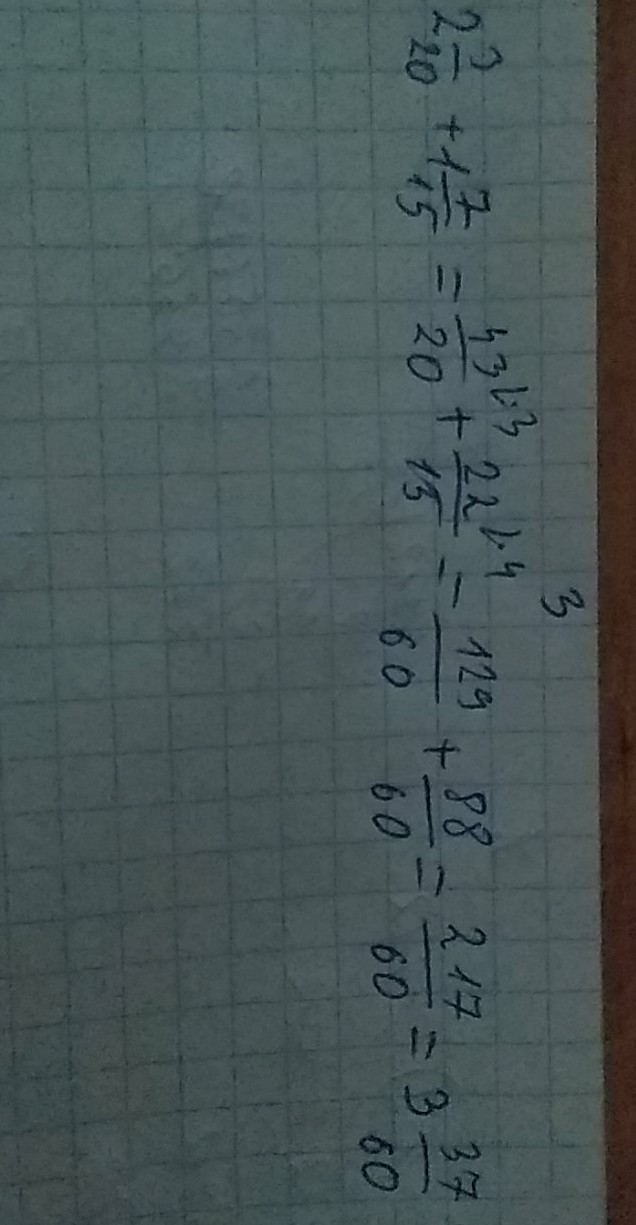 3
2 3/20 + 1 7/15 = 43/20 \·3 + 22/15 \·4 = 129/60 + 88/60 = 217/60 = 3 37/60